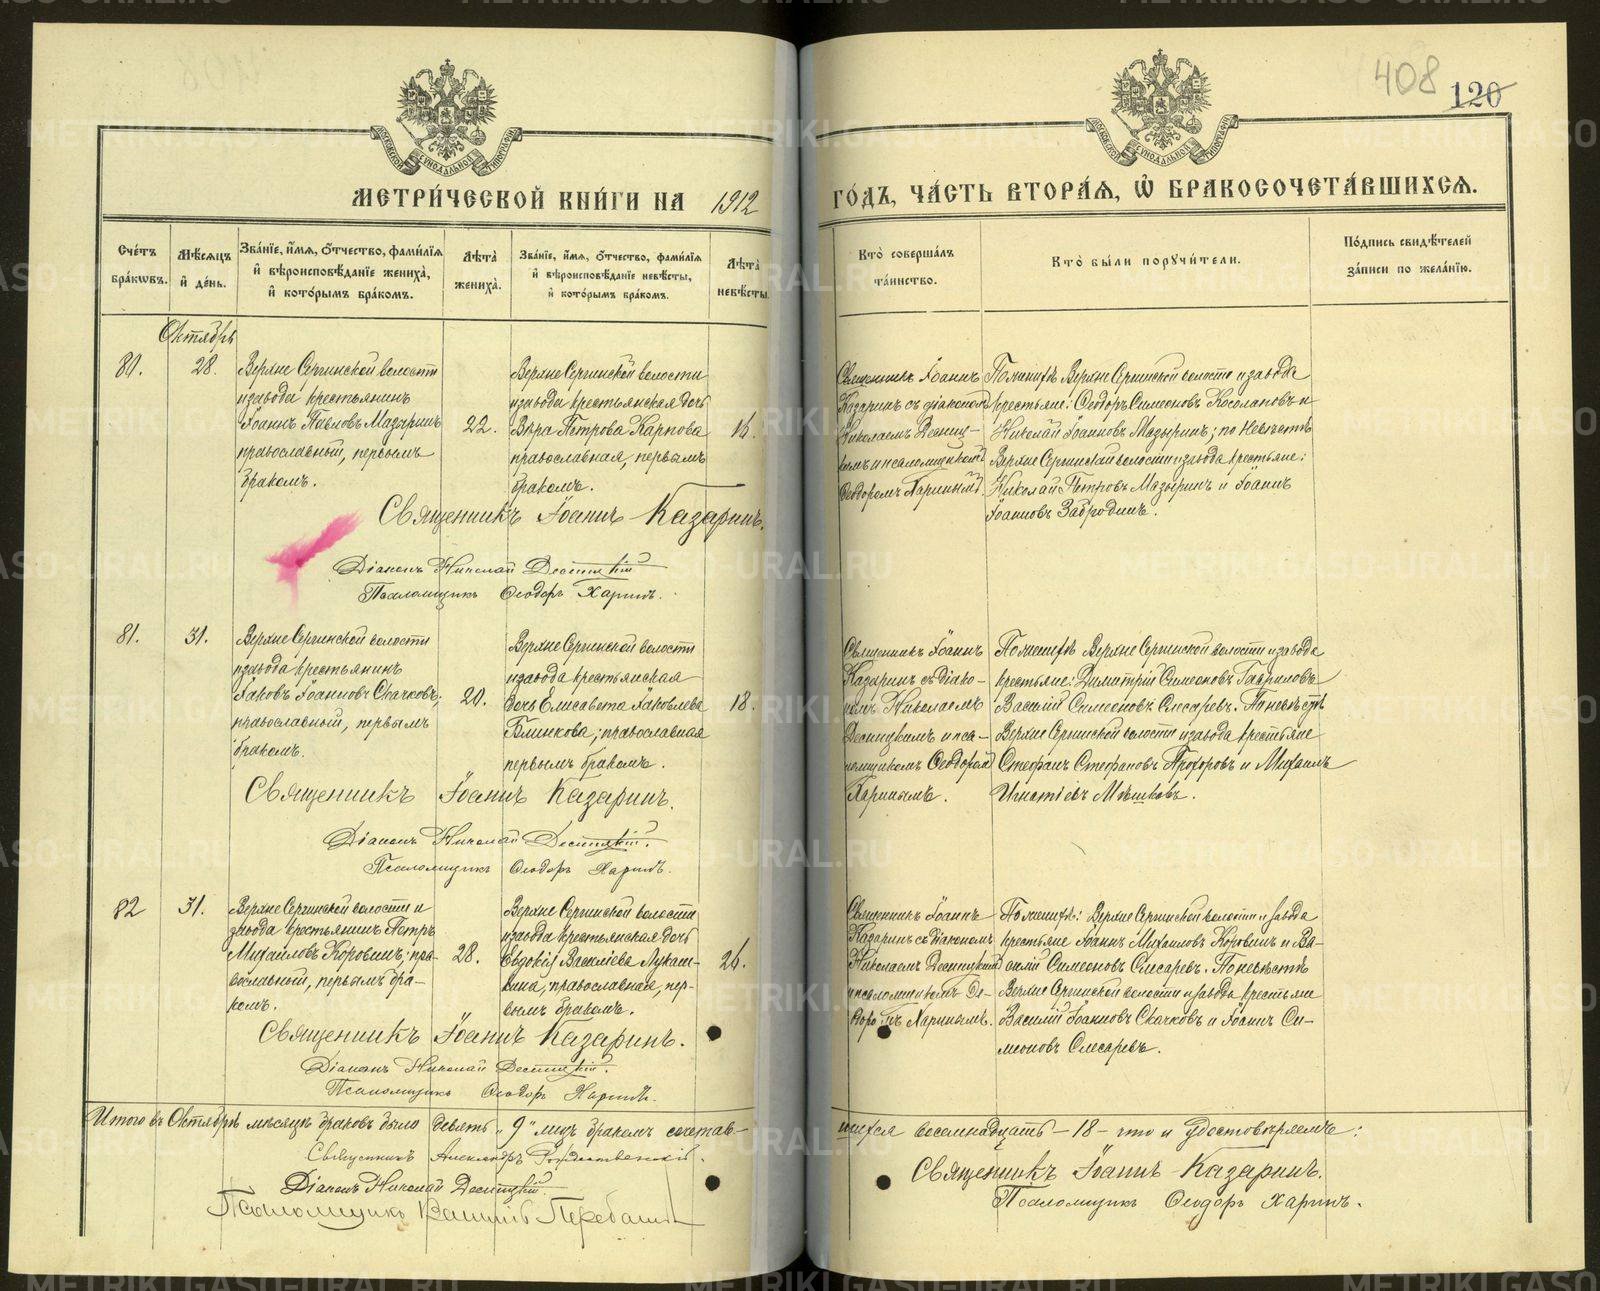 408
120
МОСКОВСКОЙ СУНОДАЛЬНОЙ ТИПОГРАФІИ
МОСКОВСКОЙ СУНОДАЛЬНОЙ ТИПОГРАФІИ
МЕТРИ́ЧЕСКОЙ КНИ́ГИ НА 1912 ГО́ДЪ, ЧА́СТЬ ВТОРА́Я, Ѽ БРАКОСОЧЕТА́ВШИХСЯ.
Сче́тъ бра́кѡвъ.
Мѣ́сяцъ и҆ де́нь.
Зва́нїе, и҆́мя, ѻ҆́тчество, фами́лїя и҆ вѣроисповѣ́данїе жениха̀, и҆ кото́рымъ бра́комъ.
Лѣ́та̀ жениха̀.
Зва́нїе, и҆́мя, ѻ҆́тчество, фами́лїя и҆ вѣроисповѣ́данїе невѣ́сты, и҆ кото́рымъ бра́комъ.
Лѣ́та̀ невѣ́сты.
Кто̀ соверша́лъ та́инство.
Кто̀ бы́ли поручи́тели.
По́дпись свидѣ́телей за́писи по жела́нїю.
Октябрь
80.
28.
Верхне Сергинской волости
и завода крестьянинъ
Іоаннъ Павловъ Мазыринъ
православный, первымъ
бракомъ.
22.
Верхне Сергинской волости
и завода крестьянская дочь
Вѣра Петрова Карпова
православная, первымъ
бракомъ.
Священникъ Іоаннъ
Казаринъ съ діакономъ
Николаемъ Десниц-
кимъ и псаломщикомъ
Ѳеодоромъ Харинымъ.
По женихѣ Верхне Сергинской волости и завода
крестьяне: Ѳеодоръ Симеоновъ Косолаповъ и
Николай Іоанновъ Мазыринъ; по невѣстѣ
Верхне Сергинской волости и завода крестьяне:
Николай Петровъ Мазыринъ и Іоаннъ
Іоанновъ Забродинъ.
Священникъ Іоаннъ Казаринъ.
Діаконъ Николай Десницкій
Псаломщикъ Ѳеодоръ Харинъ.
81.
31.
Верхне Сергинской волости
и завода крестьянинъ
Іаковъ Іоанновъ Скачковъ,
православный, первымъ
бракомъ.
20.
Верхне Сергинской волости
и завода крестьянская
дочь Елисавета Іаковлева
Блинкова, православная
первымъ бракомъ.
18.
Священникъ Іоаннъ
Казаринъ съ діако-
номъ Николаемъ
Десницкимъ и пса-
ломщикомъ Ѳеодоромъ
Харинымъ.
По женихѣ Верхне Сергинской волости и завода
крестьяне: Димитрій Симеоновъ Гавриловъ
Василій Симеоновъ Слесаревъ. По невѣстѣ
Верхне Сергинской волости и завода крестьяне
Стефанъ Стефановъ Прохоровъ и Михаилъ
Игнатіевъ Мѣшковъ.
Священникъ Іоаннъ Казаринъ.
Діаконъ Николай Десницкій.
Псаломщикъ Ѳеодоръ Харинъ.
82
31.
Верхне Сергинской волости и
завода крестьянинъ Петръ
Михаиловъ Коровинъ, пра-
вославный, первымъ бра-
комъ.
28.
Верхне Сергинской волости
и завода крестьянская дочь
Евдокія Василіева Лукаш-
кина, православная, пер-
вымъ бракомъ.
26.
Священникъ Іоаннъ
Казаринъ съ діакономъ
Николаемъ Десницкимъ
и псаломщикомъ Ѳе-
одоромъ Харинымъ.
По женихѣ: Верхне Сергинской волости и завода
крестьяне Іоаннъ Михаиловъ Коровинъ и Ва-
силій Симеоновъ Слесаревъ. По невѣстѣ
Верхне Сергинской волости и завода крестьяне
Василій Іоанновъ Скачковъ и Іоаннъ Си-
меоновъ Слесаревъ.
Священникъ Іоаннъ Казаринъ.
Діаконъ Николай Десницкій.
Псаломщикъ Ѳеодоръ Харинъ.
Итого въ Октябрѣ мѣсяцѣ браковъ было девять „9" лицъ бракомъ сочетав-
шихся восемнадцать – 18 – что и удостовѣряемъ:
Священникъ Александръ Рождественскій.
Діаконъ Николай Десницкій
Псаломщикъ
Священникъ Іоаннъ Казаринъ.
Псаломщикъ Ѳеодоръ Харинъ.
METRIKI.GASO-URAL.RU